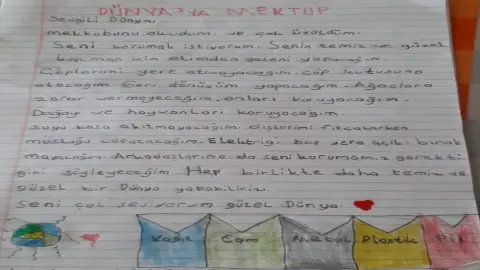 DÜNYA'YA MEKTUP
Sevgili Dünya;
mektubunu okudum ve çok üzüldüm.
Seni korumak istiyorum. Senin temiz ve güzel
kalman için elimden geleni yapacağım.
Çöplerimi yere atmayacağım çöp kutusuna
atacağım Geri dönüşüm yapacağım. Ağaçlara
zarar vermeyeceğim, onları koruyacağım.
Doğayı ve hayvanları koruyacağım.
Suyu boşa akıtmayacağım dişlerimi fırçalarken
musluğu kapatacağım. Elektriği boş yere açık bırak
mayacağım. Arkadaşlarıma da seni korumamız gerekti
ğini söyleyeceğim Hep birlikte daha temiz ve
güzel bir Dünya yapabiliriz
Seni çok seviyorum güzel Dünya.
Kağıt Cam Metal Plastik Pil